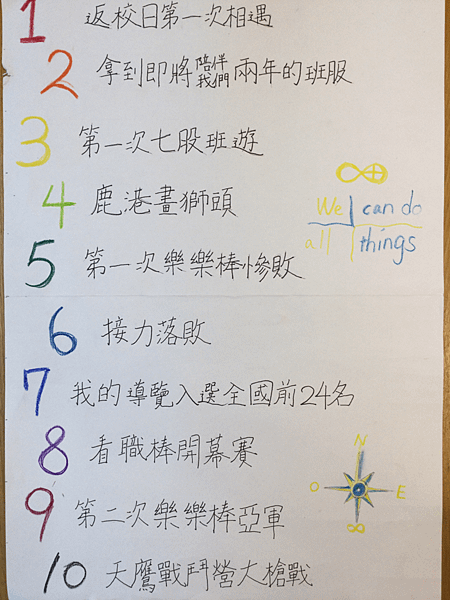 1 返校日第一次相遇
2 拿到即將陪伴我們兩年的班服
3 第一次七股班遊
4 鹿港畫獅頭
We can do
all things
5 第一次樂樂棒慘敗
6 接力落敗
7 我的導覽入選全國前24名
8 看職棒開幕賽
N
O E
∞
9 第二次樂樂棒亞軍
10 天鷹戰鬥營大槍戰